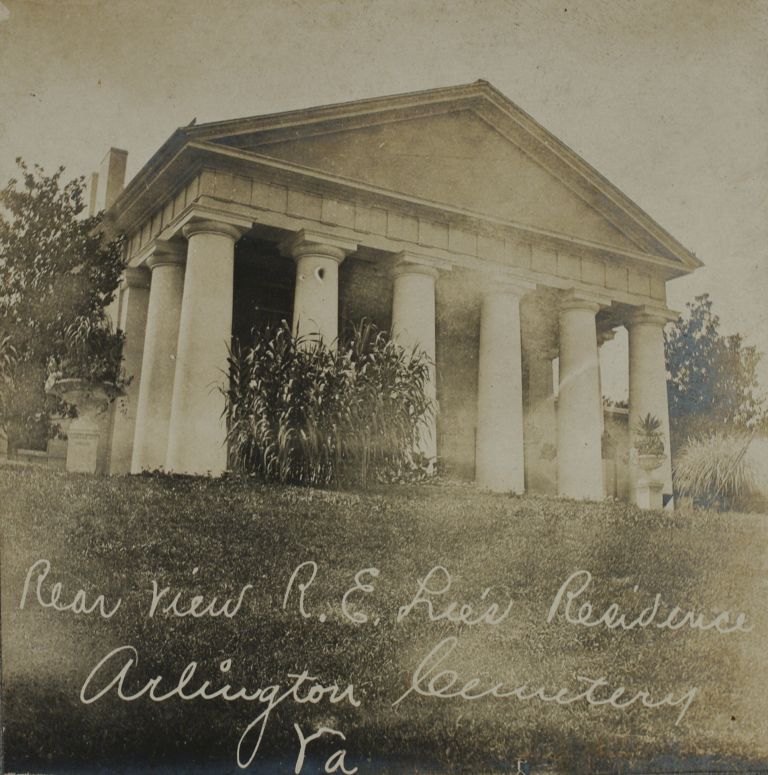 Rear View R. E. Lee's Residence
Arlington Cemetery
Va